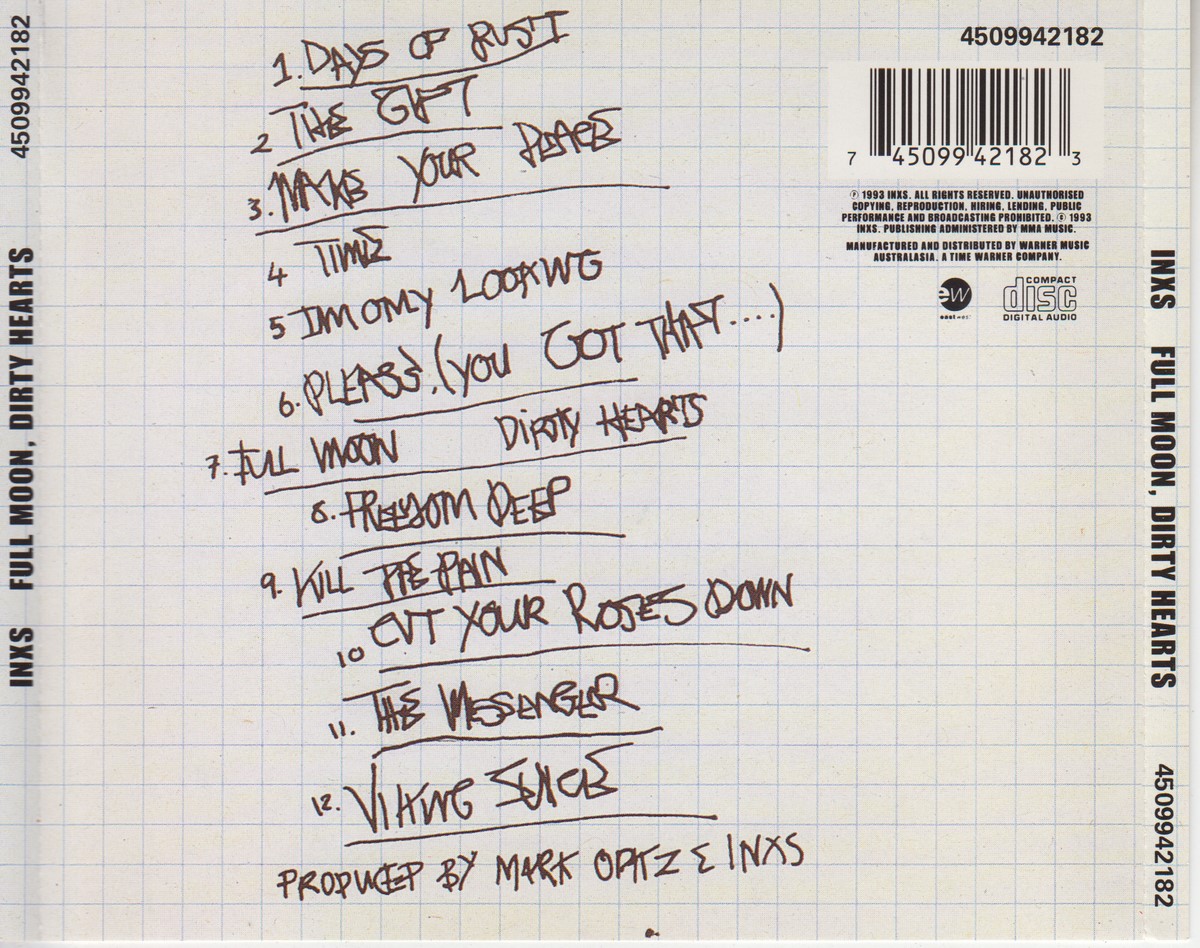 4509942182
INXS FULL MOON, DIRTY HEARTS
1. DAYS OF RUST
2 THE GIFT
3. MAKE YOUR PEACE
4 TIME
5 IM ONLY LOOKING
6. PLEASE. (YOU GOT THAT....)
7. FULL MOON DIRTY HEARTS
8. FREEDOM DEEP
9. KILL THE PAIN
10 CUT YOUR ROSES DOWN
11. THE MESSENGER
12. VIKING JUICE
PRODUCED BY MARK OPITZ & INXS
4509942182
7 45099 42182 3
℗ 1993 INXS. ALL RIGHTS RESERVED. UNAUTHORISED
COPYING, REPRODUCTION, HIRING, LENDING, PUBLIC
PERFORMANCE AND BROADCASTING PROHIBITED. © 1993
INXS. PUBLISHING ADMINISTERED BY MMA MUSIC.
MANUFACTURED AND DISTRIBUTED BY WARNER MUSIC
AUSTRALASIA. A TIME WARNER COMPANY.
ew
east west
COMPACT
disc
DIGITAL AUDIO
INXS FULL MOON, DIRTY HEARTS
4509942182